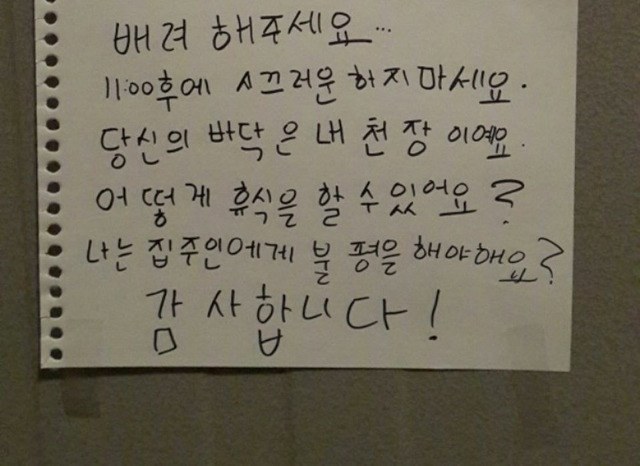 배려 해주세요...
11:00후에 시끄러운 하지마세요.
당신의 바닥은 내 천장이예요.
어떻게 휴식을 할 수 있어요?
나는 집주인에게 불평을 해야해요?
감사합니다!